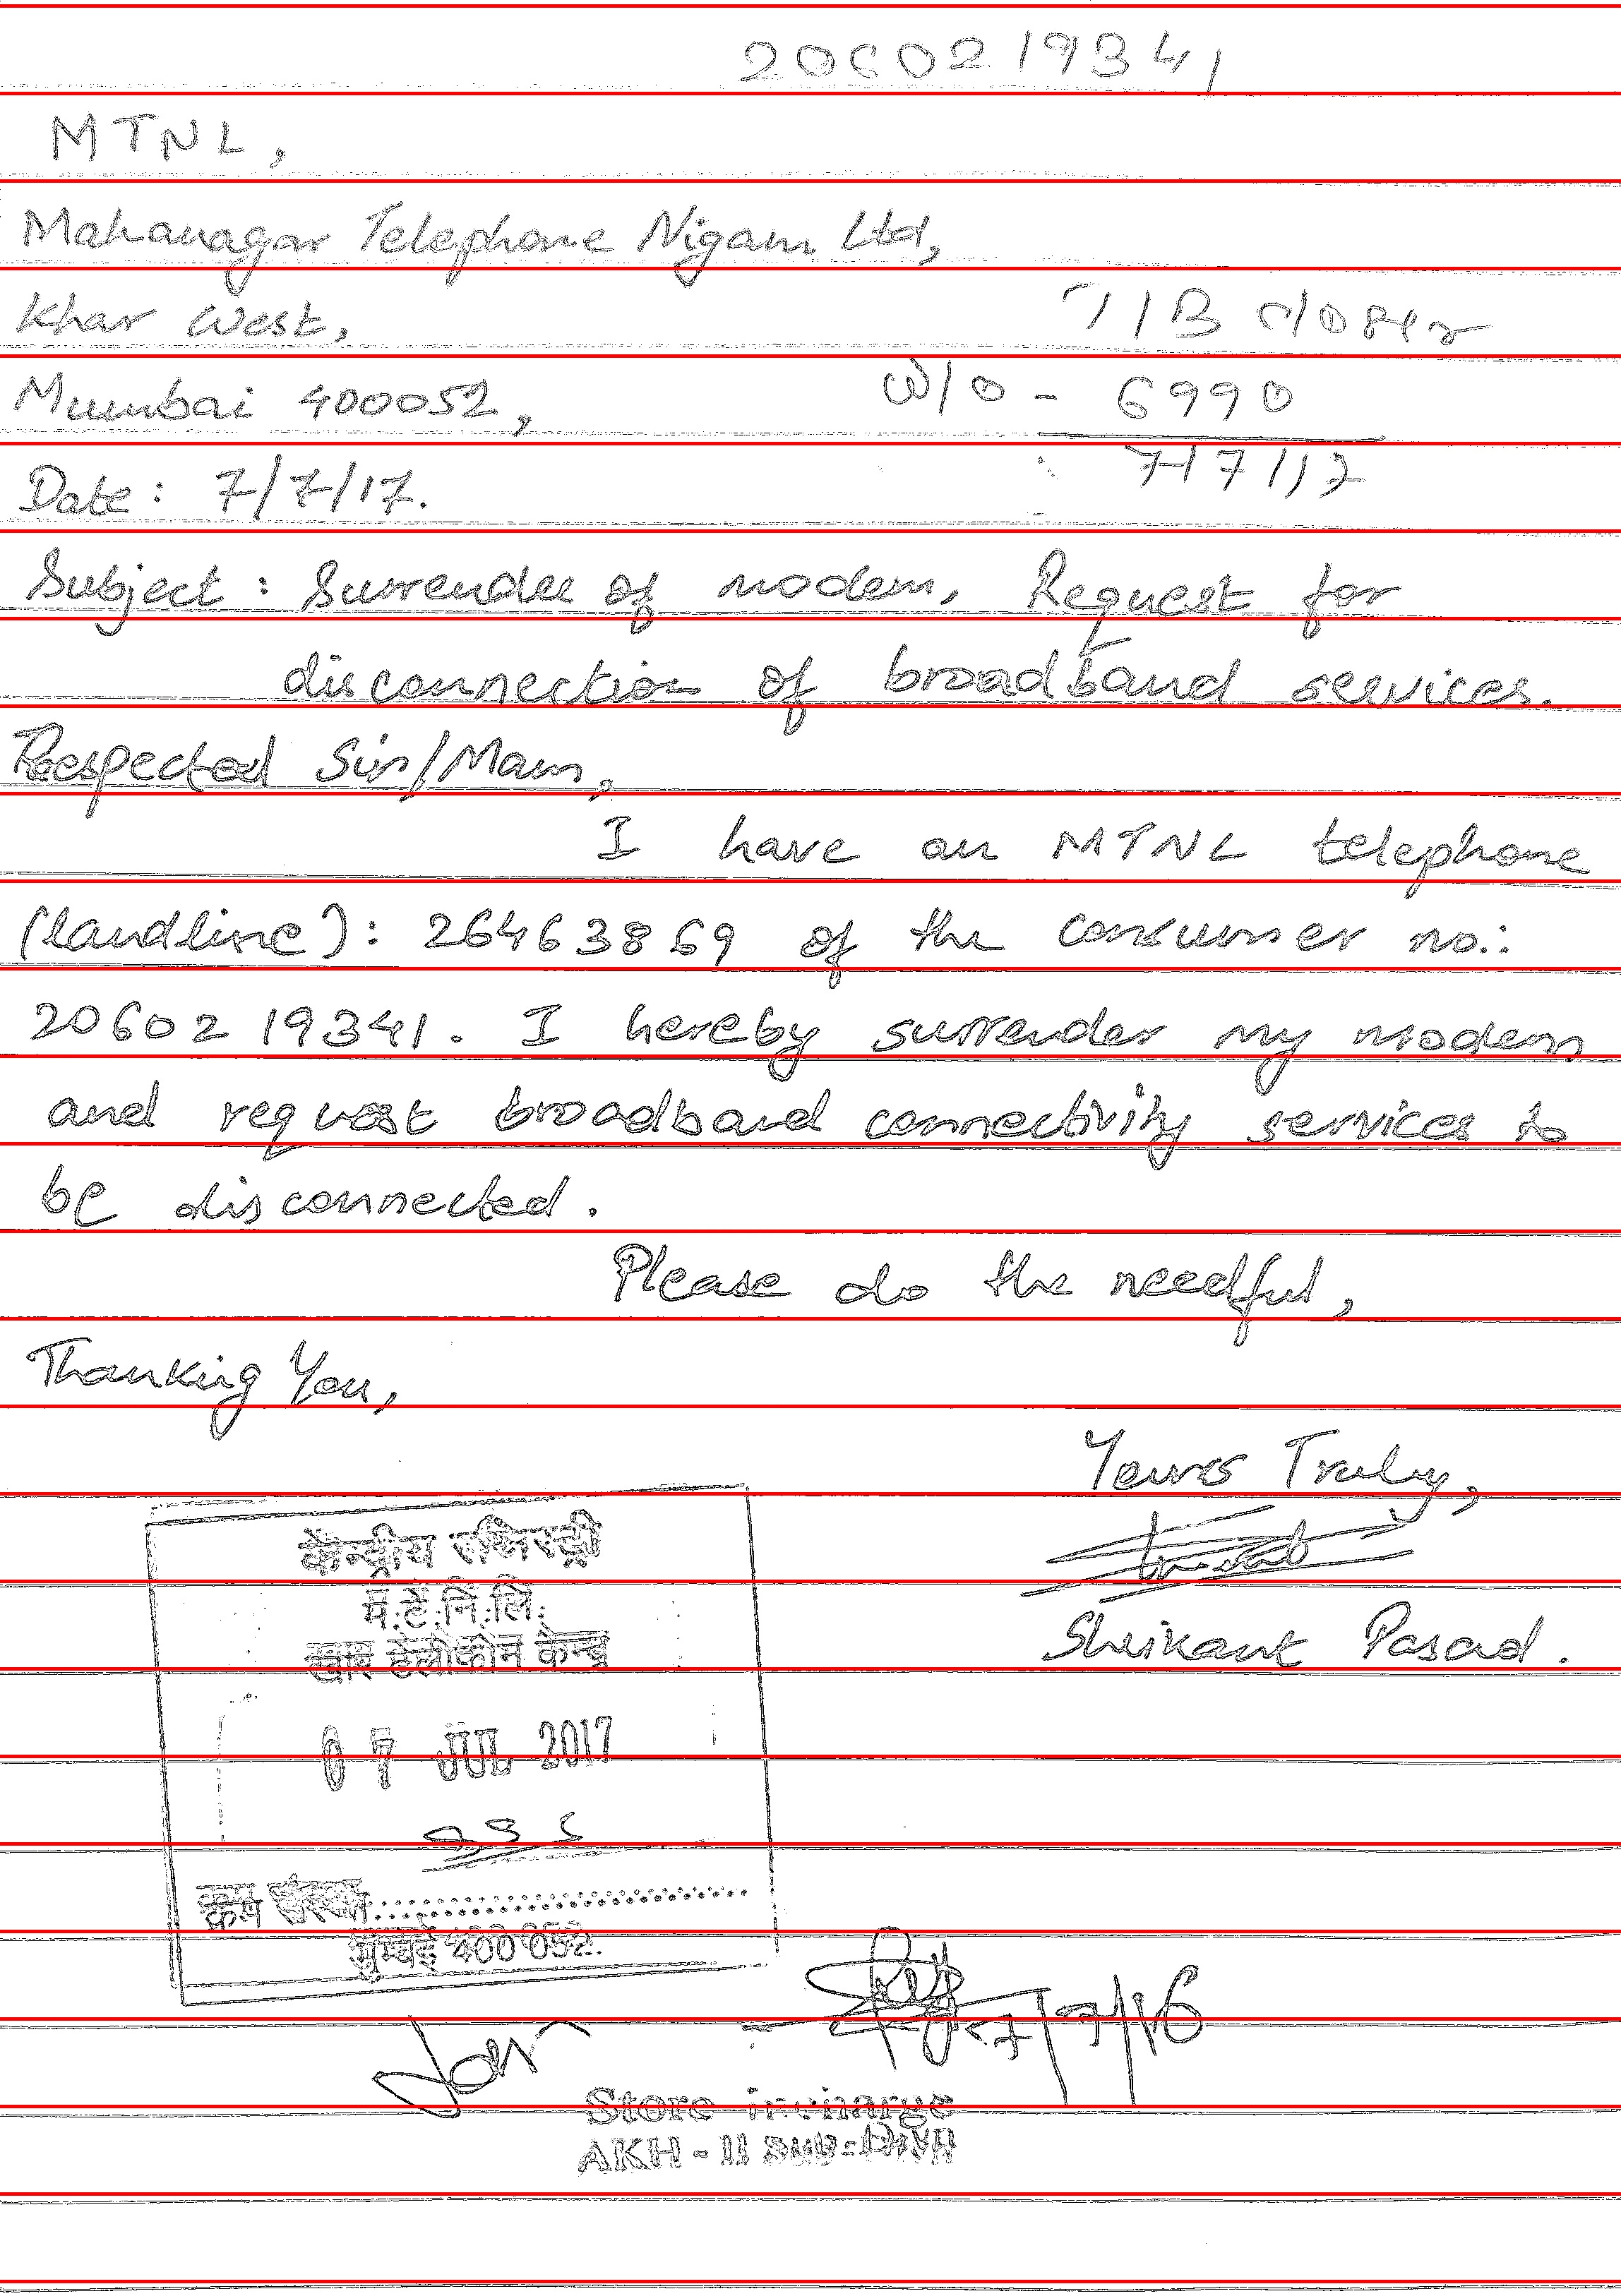 2060219341
MTNL,
Mahanagar Telephone Nigam Ltd,
Khar West,
Mumbai 400052,
W/O - 6990
7/7/17
Date: 7/7/17.
Subject: Surrender of modem, Request for
disconnection of broadband services.
Respected Sir/Mam,
I have an MTNL telephone
(landline): 26463869 of the consumer no.:
2060219341. I hereby surrender my modem
and request broadband connectivity services to
be disconnected.
Please do the needful,
Thanking You,
Yours Truly,
Shrikant Pasad.
केन्द्रीय रजिस्ट्री
म.टे.नि.लि.
खार टेलीफोन केन्द्र
07 JUL 2017
क्रम संख्या....................
मुम्बई 400 052.
7/7/16
Store in-charge
AKH - II Sub-Divn